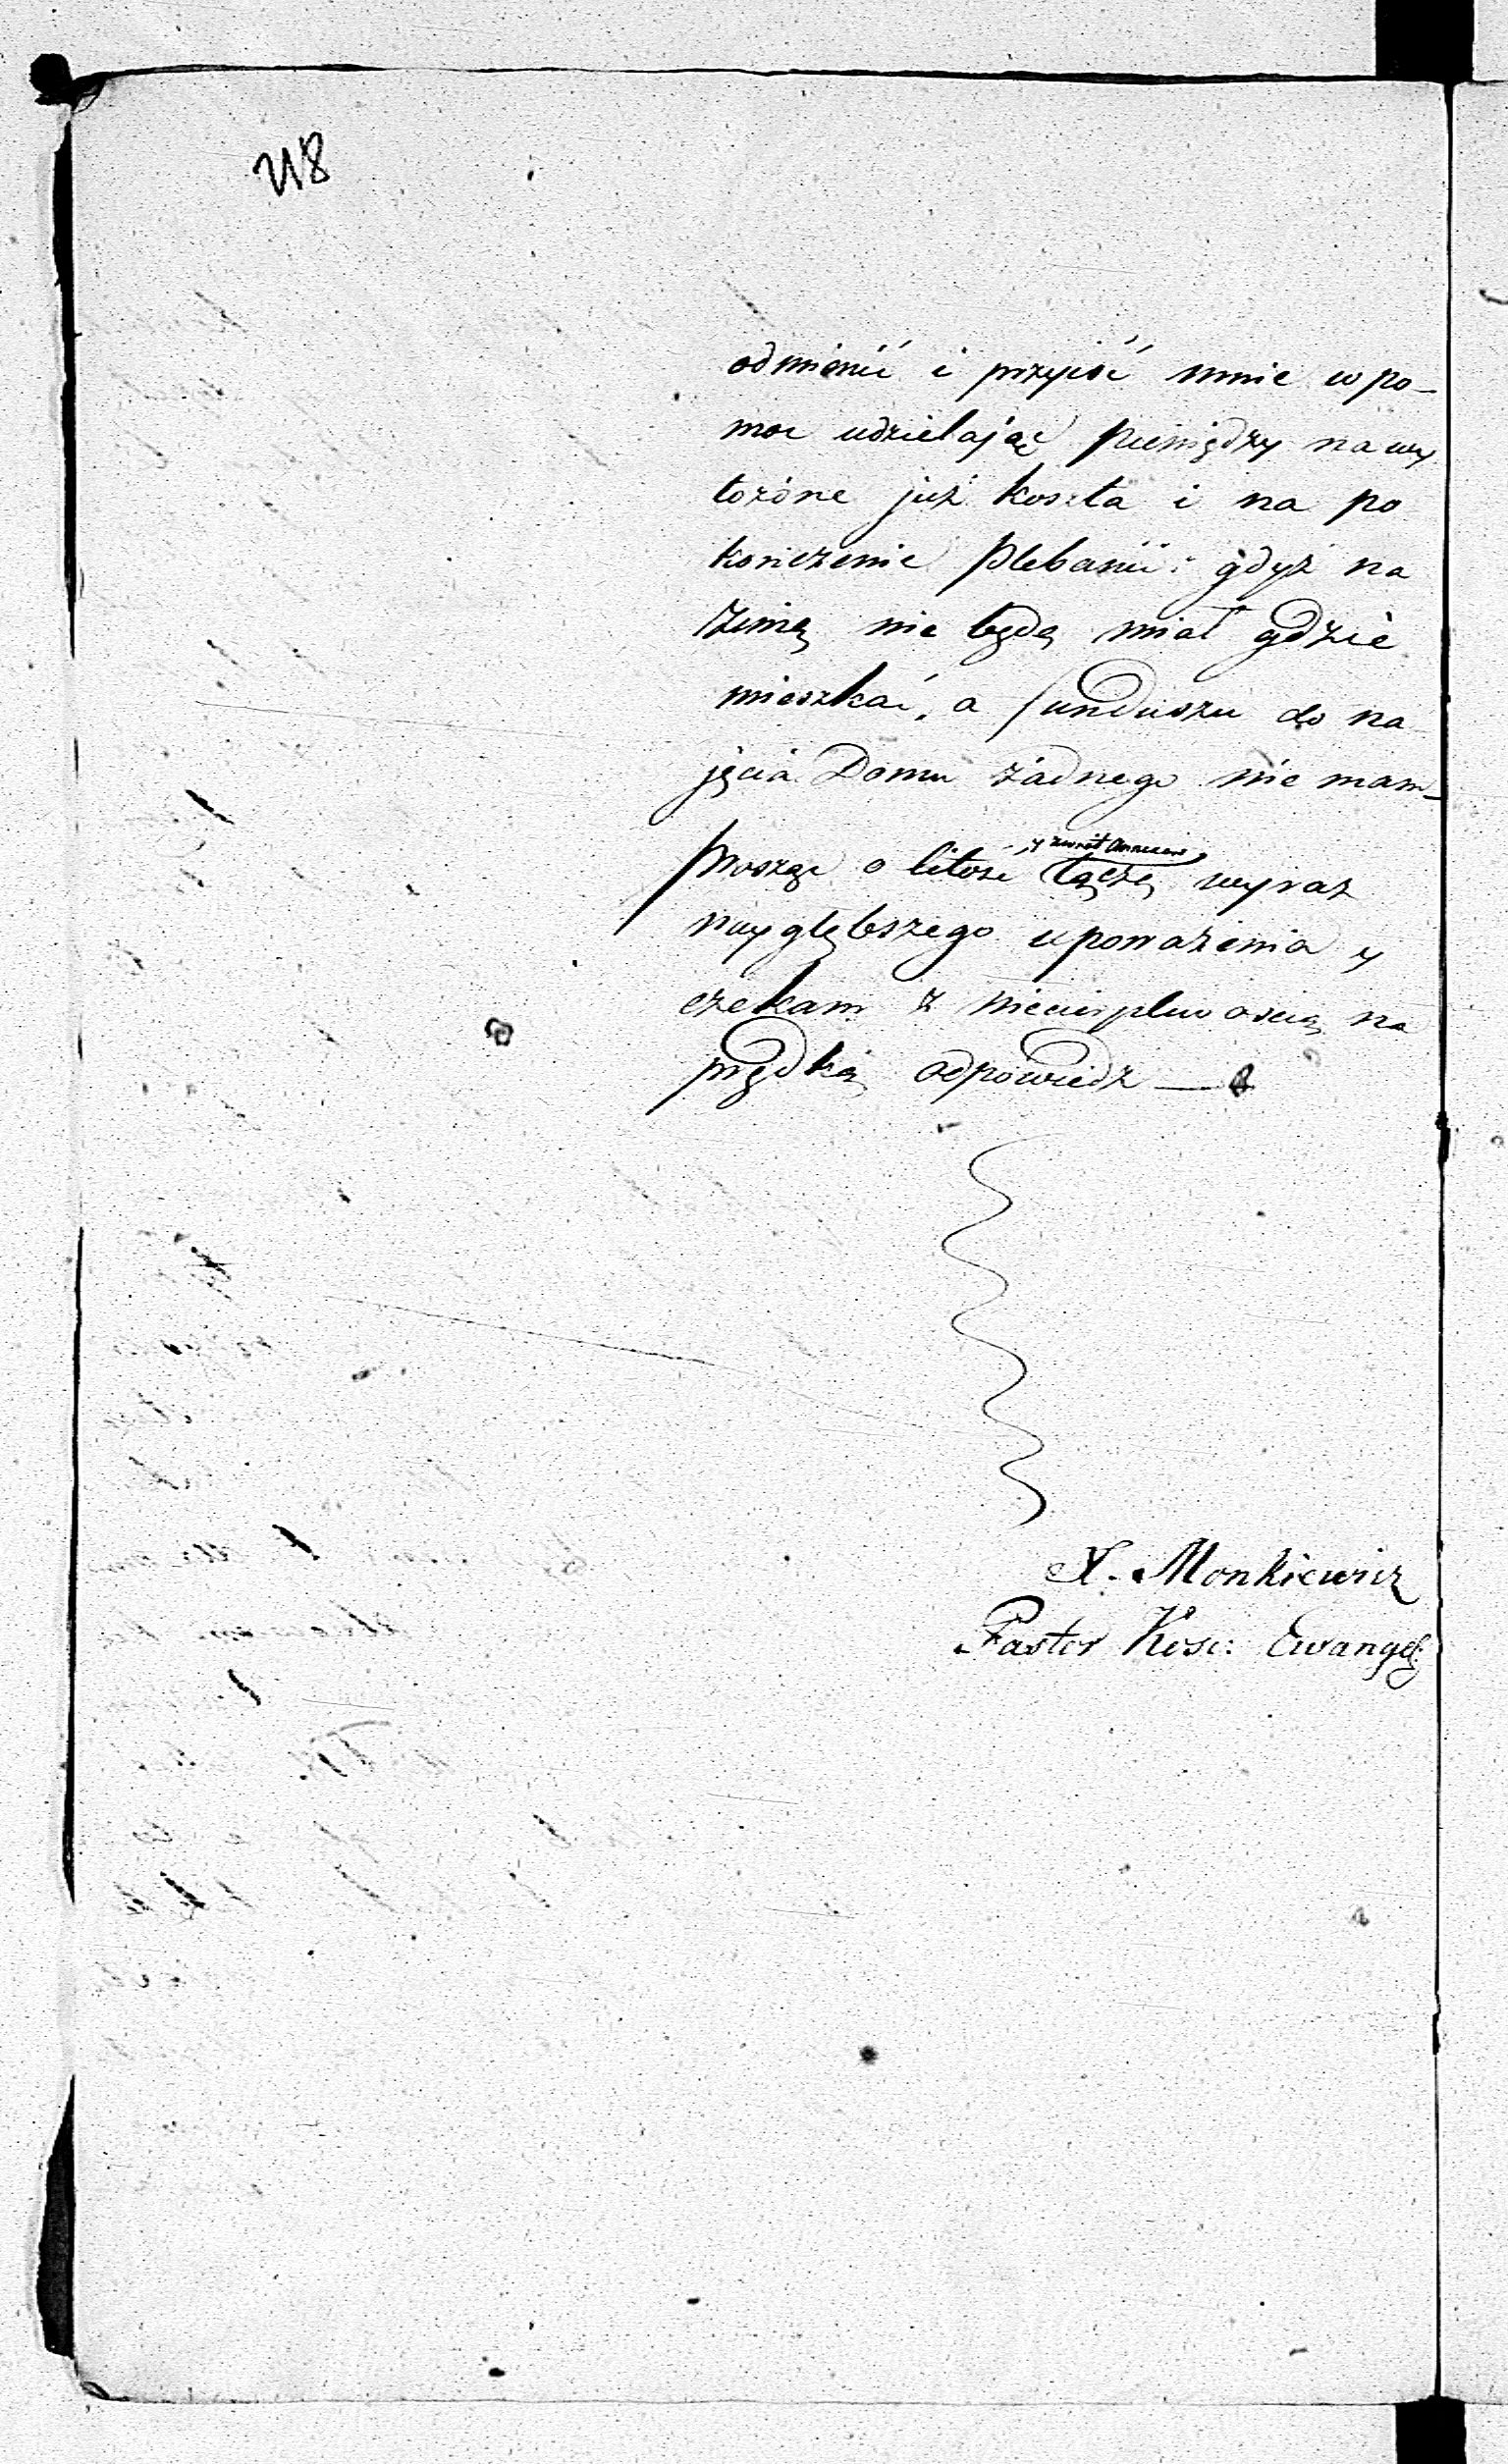 odmienić i przyiść mnie w po-
moc udzielając pieniędzy na wy
łożone już koszta i na po
kończenie Plebanii: gdyż na
zimę nie będę miał gdzie
mieszkać, a funduszu do na
jęcia Domu żadnego nie mam_
proszę o litość łączę wyraz
naygłębszego upoważenia y
czekam z niecierpliwością na
prędką odpowiedz —
X. Monkiewicz
Pastor Kośc: Ewangel: